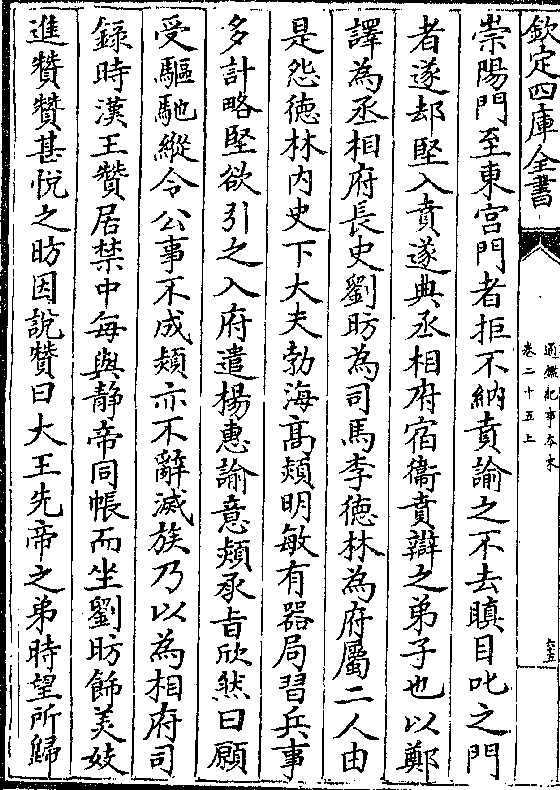 欽定四庫全書
通鑑紀事本末
卷二十五上
崇陽門至東宮門者拒不納賁諭之不去瞋目叱之門
者遂却堅入賁遂典丞相府宿衛賁辯之弟子也以鄭
譯為丞相府長史劉昉為司馬李德林為府屬二人由
是怨德林內史下大夫勃海高熲明敏有器局習兵事
多計略堅欲引之入府遣楊惠諭意熲承旨欣然曰願
受驅馳縱令公事不成熲亦不辭滅族乃以為相府司
錄時漢王贊居禁中每與靜帝同帳而坐劉昉飾美妓
進贊贊甚悅之昉因說贊曰大王先帝之弟時望所歸